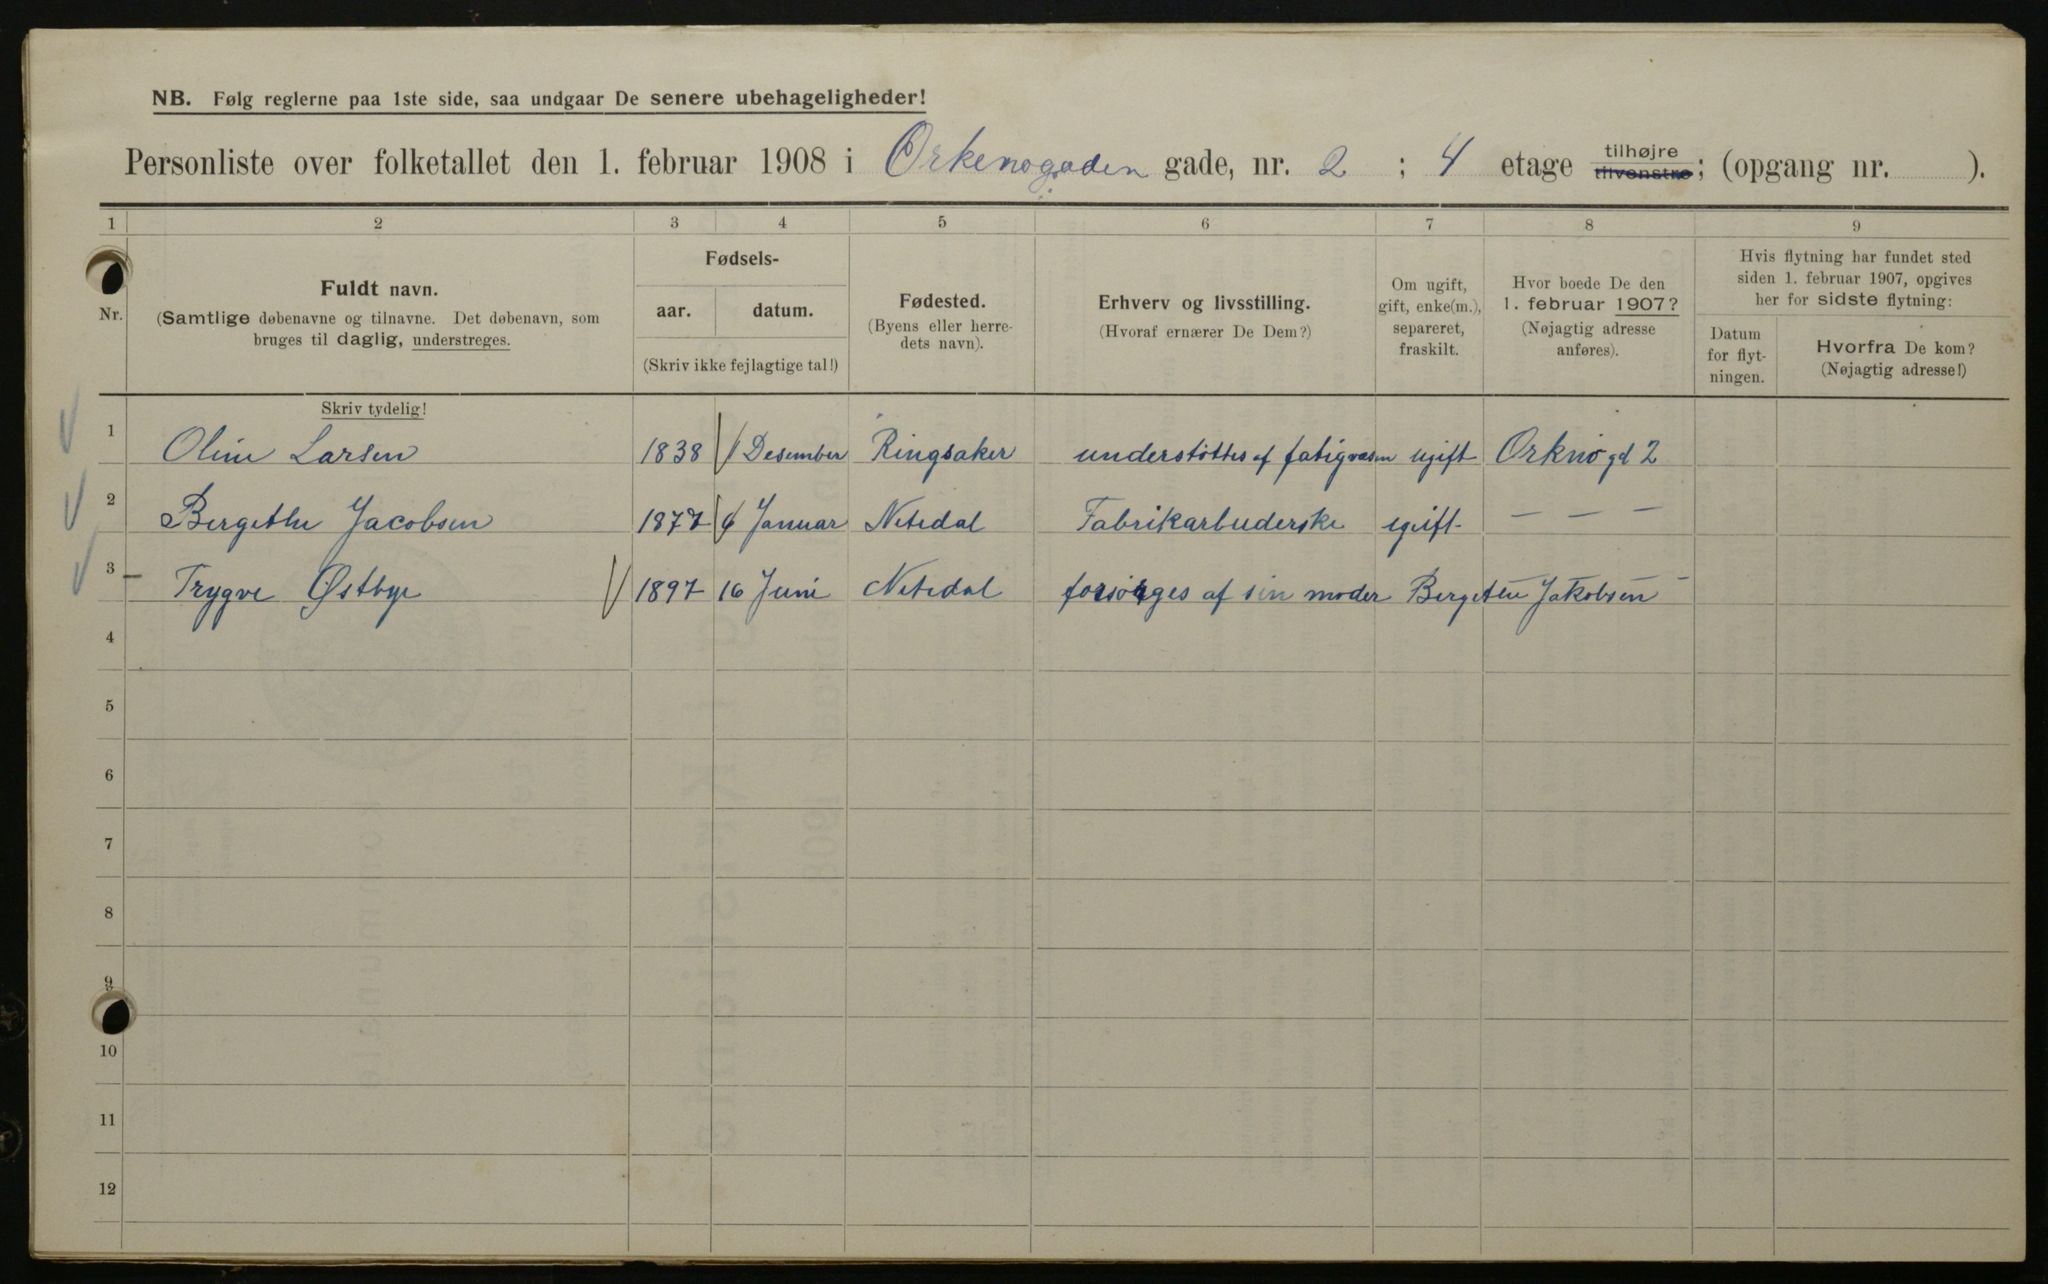 NB. Følg reglerne paa 1ste side, saa undgaar De senere ubehageligheder!
Personliste over folketallet den 1. februar 1908 i Orkenogaden gade, nr. 2 ; 4 etage tilhøjre tilvenstre; (opgang nr. ).
1 2 3 4 5 6 7 8 9
Nr.
Fuldt navn.
(Samtlige døbenavne og tilnavne. Det døbenavn, som
bruges til daglig, understreges.
Fødsels-
aar. datum.
(Skriv ikke fejlagtige tal!)
Fødested.
(Byens eller herre-
dets navn).
Erhverv og livsstilling.
(Hvoraf ernærer De Dem?)
Om ugift,
gift, enke(m.),
separeret,
fraskilt.
Hvor boede De den
1. februar 1907?
(Nøjagtig adresse
anføres).
Hvis flytning har fundet sted
siden 1. februar 1907, opgives
her for sidste flytning:
Datum
for flyt-
ningen.
Hvorfra De kom?
(Nøjagtig adresse!)
Skriv tydelig!
1 Oline Larsen 1838 1 Desember Ringsaker understöttes af fatigvæsen ugift Orknögd 2
2 Bergethe Jacobsen 1877 6 Januar Nitedal Fabrikarbuderske ugift — — —
3 Trygve Østbye 1897 16 Juni Nitedal forsörges af sin moder Bergethe Jakobsen
4
5
6
7
8
9
10
11
12